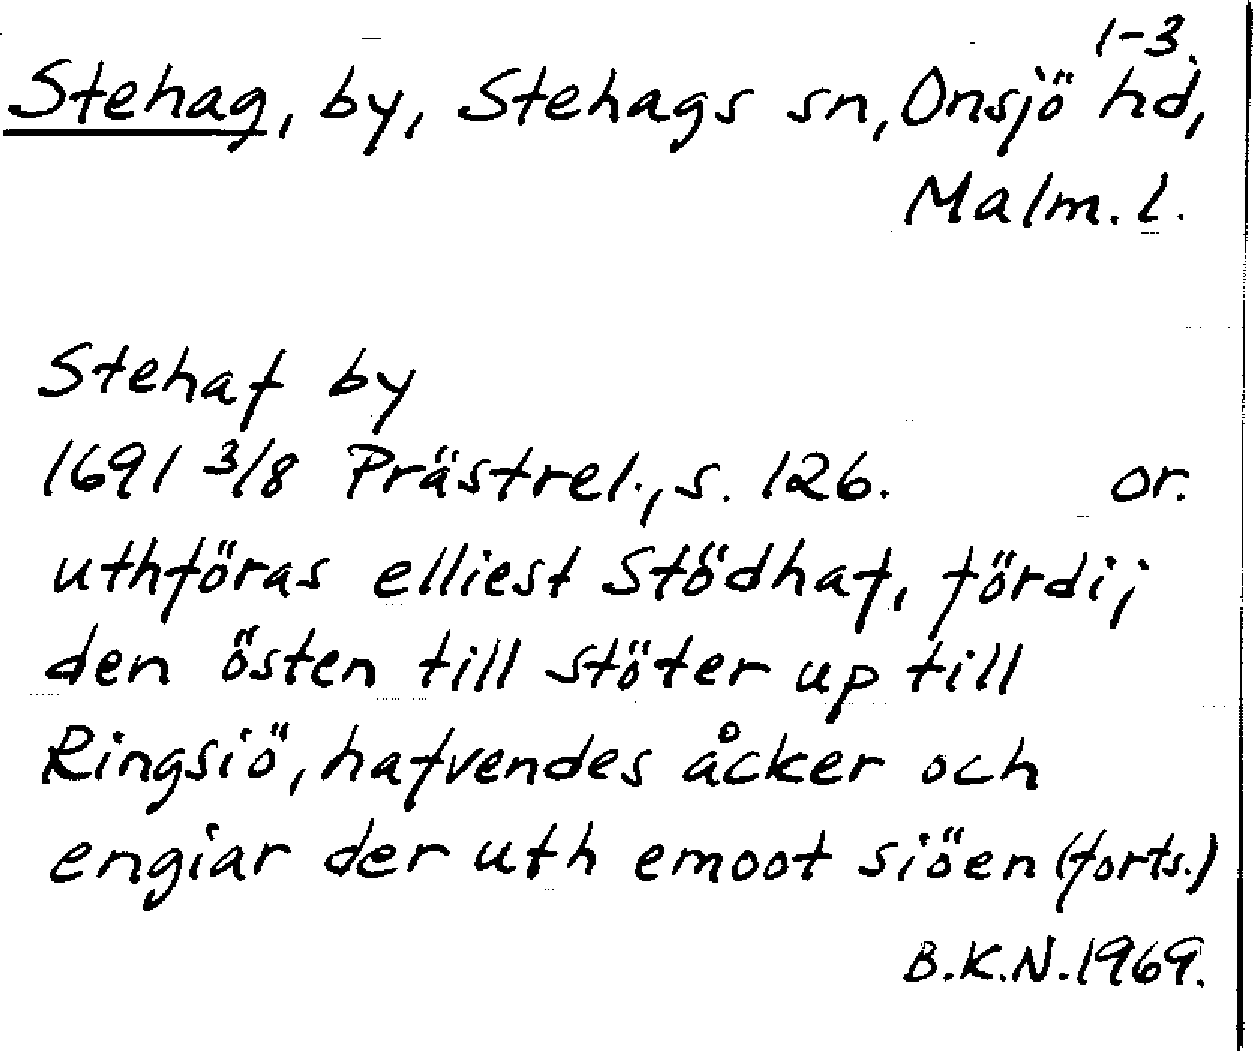 1-3.
Stehag, by, Stehags sn, Onsjö hd,
Malm. l.
Stehaf by
1691 3/8 Prästrel., s. 126. or.
uthföras elliest Stödhaf, fördij
den östen till stöter up till
Ringsiö, hafvendes åcker och
engiar der uth emoot siöen (forts.)
B.K.N. 1969.